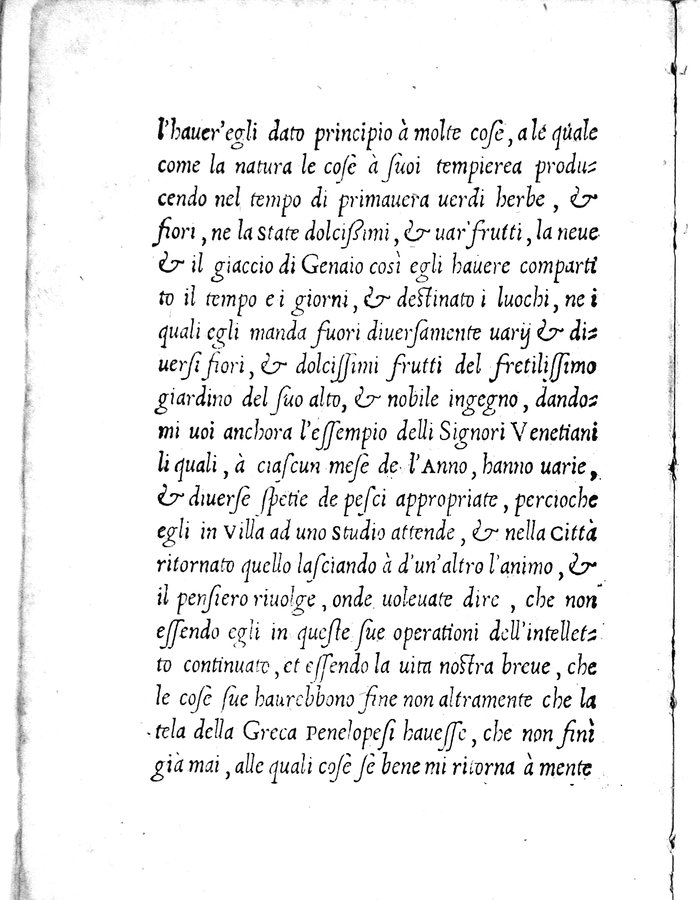 l'hauer'egli dato principio à molte cose, a lé quale
come la natura le cose à suoi tempierea produ-
cendo nel tempo di primauera uerdi herbe, &
fiori, ne la State dolcißimi, & uar'frutti, la neue
& il giaccio di Genaio così egli hauere comparti
to il tempo e i giorni, & destinato i luochi, ne i
quali egli manda fuori diuersamente uarij & di-
uersi fiori, & dolcissimi frutti del fretilissimo
giardino del suo alto, & nobile ingegno, dando-
mi uoi anchora l'essempio delli Signori Venetiani
li quali, à ciascun mese de l'Anno, hanno uarie,
& diuerse spetie de pesci appropriate, percioche
egli in Villa ad uno Studio attende, & nella Città
ritornato quello lasciando à d'un'altro l'animo, &
il pensiero riuolge, onde uoleuate dire, che non
essendo egli in queste sue operationi dell'intellet-
to continuato, et essendo la uita nostra breue, che
le cose sue haurebbono fine non altramente che la
tela della Greca Penelopesi hauesse, che non finì
già mai, alle quali cose se bene mi ritorna à mente